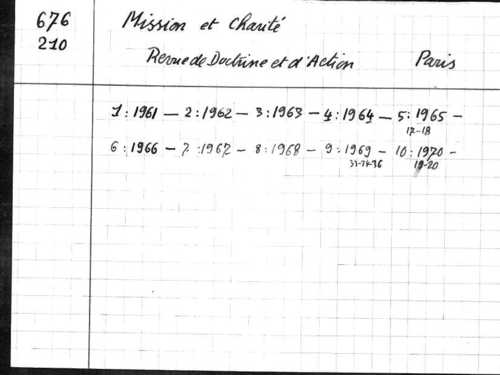 676
210
Mission et Charité
Revue de Doctrine et d'Action Paris
1 : 1961 — 2 : 1962 — 3 : 1963 — 4 : 1964 — 5 : 1965 —
17-18
6 : 1966 — 7 : 1967 — 8 : 1968 — 9 : 1969 — 10 : 1970 —
19-20